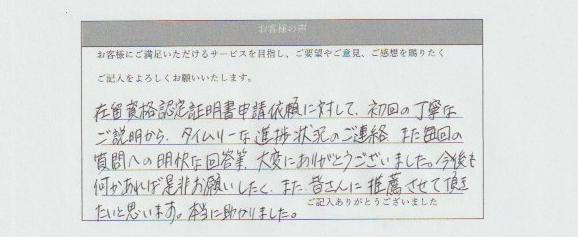 お客様の声
お客様にご満足いただけるサービスを目指し、ご要望やご意見、ご感想を賜りたく
ご記入をよろしくお願いいたします。
在留資格認定証明書申請依頼に対して、初回の丁寧な
ご説明から、タイムリーな進捗状況のご連絡、また毎回の
質問への明快な回答等、大変にありがとうございました。今後も
何かあれば是非お願いしたく、また、皆さんに推薦させて頂き
たいと思います。本当に助かりました。
ご記入ありがとうございました